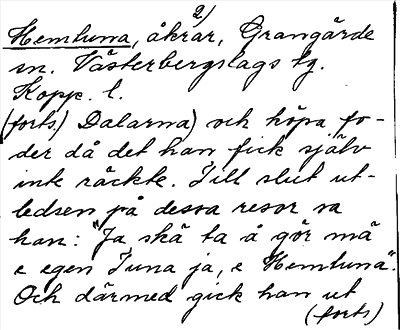 2)
Hemtuna, åkrar, Grangärde
sn. Västerbergslags tg.
Kopp. l.
(forts.) Dalarna) och köpa fo-
der då det han fick själv
inte räckte. Till slut ut-
ledsen på dessa resor sa
han: "Ja, skä ta å gör mä
e egen Tuna ja, e Hemtuna".
Och därmed gick han ut
(forts)